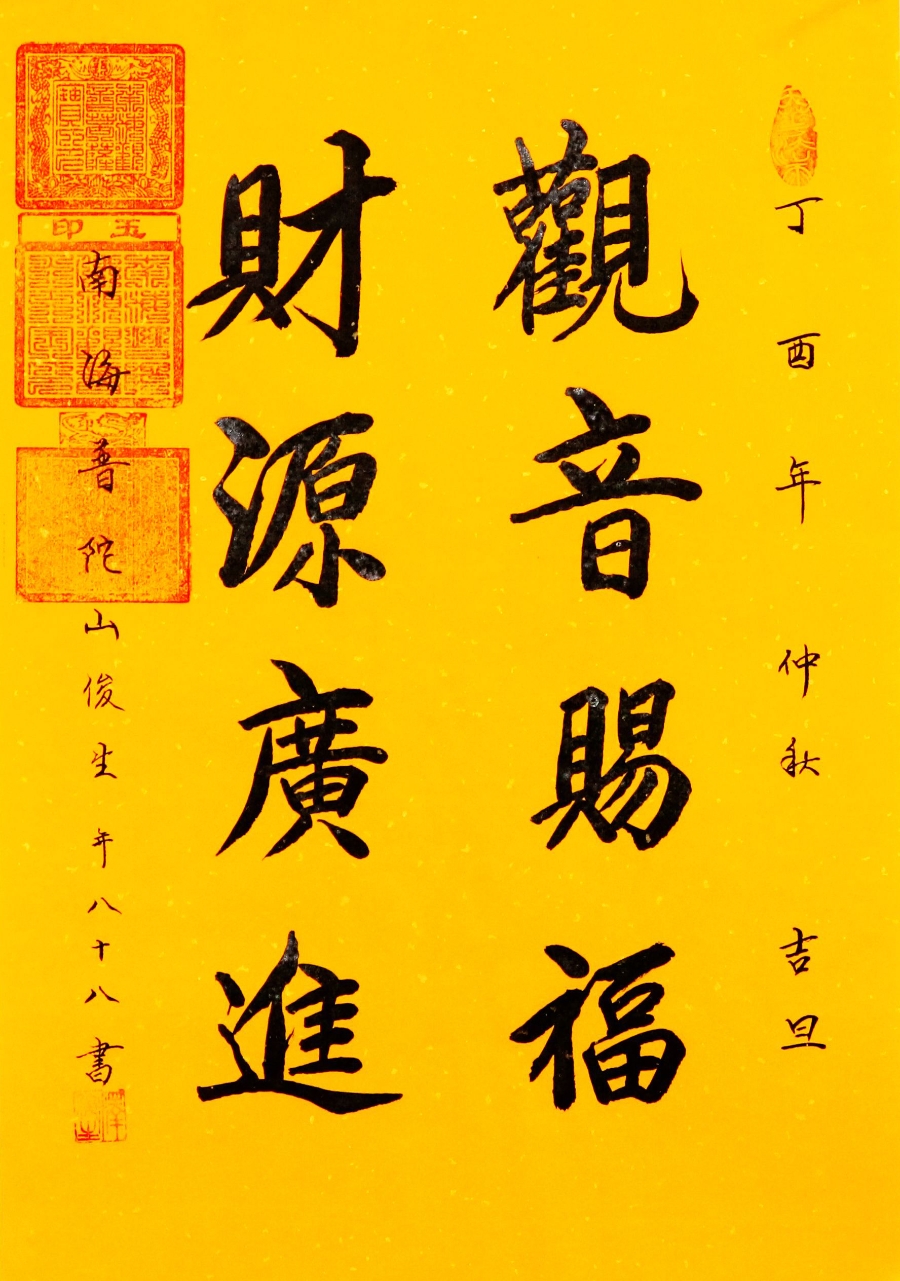 丁酉年仲秋吉旦
觀音賜福
財源廣進
南海普陀山俊生年八十八書
玉印